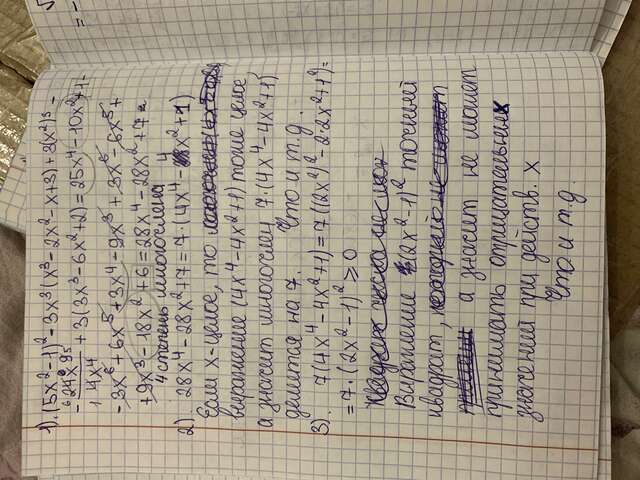 1). (5x²-1)² - 3x³(x³-2x²-x+3) + 3(x²)³ -
+ 3(3x³-6x²+2) = 25x⁴-10x²+1-
-3x⁶+6x⁵+3x⁴-9x³+3x⁶-6x⁵+
+9x³-18x²+6=28x⁴-28x²+7
4 степень многочлена
2). 28x⁴-28x²+7=7·(4x⁴-4x²+1)
Если x-целое, то
выражение (4x⁴-4x²+1) тоже целое
а значит многочлен 7·(4x⁴-4x²+1)
делится на 7. Что и т.д.
3). 7(4x⁴-4x²+1)=7((2x²)²-2·2x²+1²)=
=7·(2x²-1)² ≥ 0
Выражение (2x²-1)² точный
квадрат,
а значит не может
принимать отрицательных
значений при действ. x
Что и т.д.